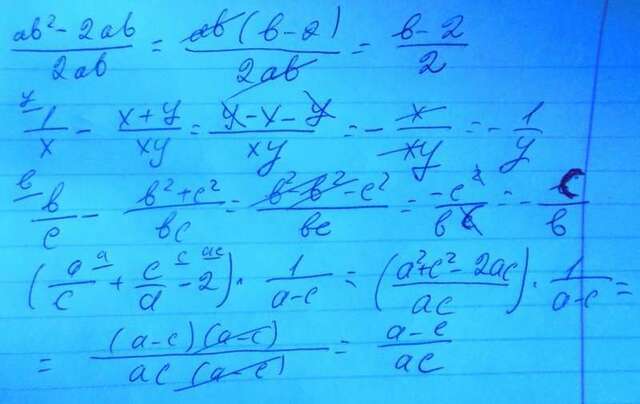 ab² - 2ab / 2ab = ab(b-2) / 2ab = b-2 / 2
y 1/x - x+y / xy = y-x-y / xy = - x / xy = - 1/y
b b/c - b²+c² / bc = b²-b²-c² / bc = -c² / bc = - c/b
(a a/c + c c/a - 2 ac) · 1 / a-c = (a²+c²-2ac / ac) · 1 / a-c =
= (a-c)(a-c) / ac(a-c) = a-c / ac